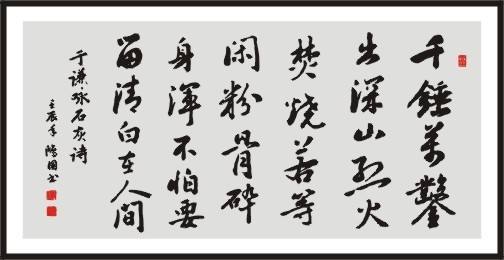 千錘萬鑿
出深山烈火
焚燒若等
闲粉骨碎
身渾不怕要
留清白在人間
于谦咏石灰诗
壬辰年